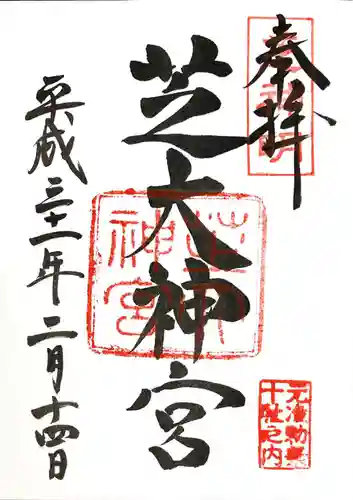 奉拝
芝大神宮
平成三十一年二月十四日
芝神宮
元准勅祭
十社之内